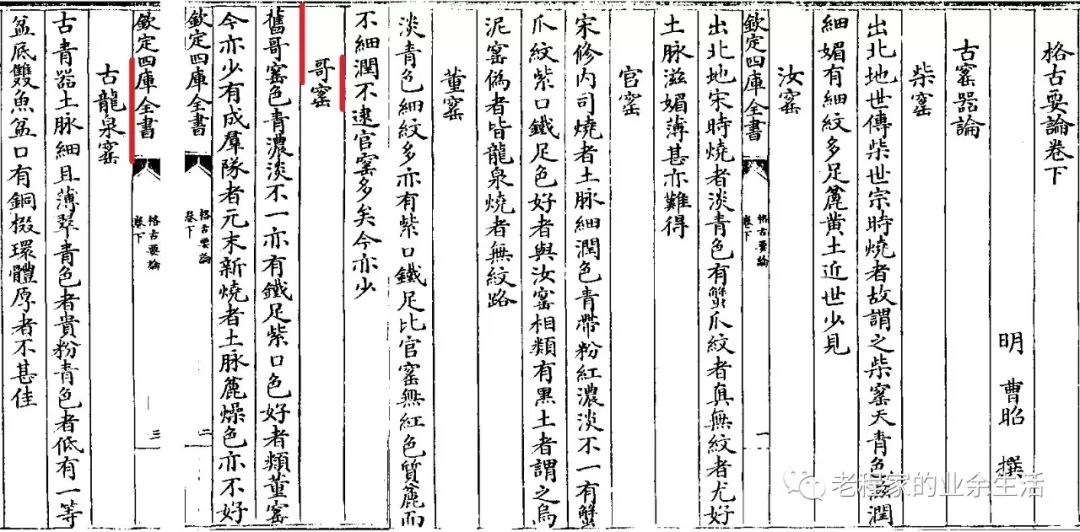 格古要論卷下
明 曹昭 撰
古窰器論
柴窰
出北地世傳柴世宗時燒者故謂之柴窰天青色滋潤
細媚有細紋多足麄黃土近世少見
汝窰
欽定四庫全書 格古要論 卷下 一
出北地宋時燒者淡青色有蟹爪紋者真無紋者尤好
土脉滋媚薄甚亦難得
官窰
宋修内司燒者土脉細潤色青帶粉紅濃淡不一有蟹
爪紋紫口鐵足色好者與汝窰相類有黑土者謂之烏
泥窰偽者皆龍泉燒者無紋路
董窰
淡青色細紋多亦有紫口鐵足比官窰無紅色質麄而
不細潤不逮官窰多矣今亦少
哥窰
舊哥窰色青濃淡不一亦有鐵足紫口色好者類董窰
今亦少有成羣隊者元末新燒者土脉麄燥色亦不好
欽定四庫全書 格古要論 卷下 二
欽定四庫全書 格古要論 卷下 三
古龍泉窰
古青器土脉細且薄翠青色者貴粉青色者低有一等
盆底雙魚盆口有銅掇環體厚者不甚佳
老程家的业余生活